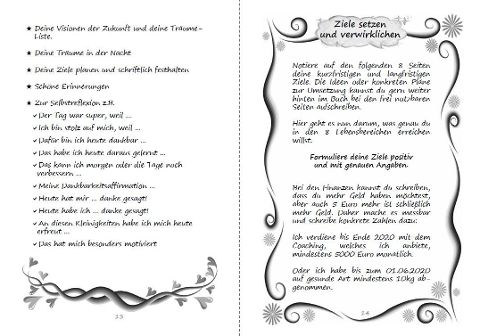 ★ Deine Visionen der Zukunft und deine Träume-
Liste.
★ Deine Träume in der Nacht
★ Deine Ziele planen und schriftlich festhalten
★ Schöne Erinnerungen
★ Zur Selbstreflexion z.B.
✓ Der Tag war super, weil ...
✓ Ich bin stolz auf mich, weil ...
✓ Dafür bin ich heute dankbar ...
✓ Das habe ich heute daraus gelernt ...
✓ Das kann ich morgen oder die Tage noch
verbessern ...
✓ Meine Dankbarkeitsaffirmation ...
✓ Heute hat mir ... danke gesagt!
✓ Heute habe ich ... danke gesagt!
✓ An diesen Kleinigkeiten habe ich mich heute
erfreut ...
✓ Das hat mich besonders motiviert
23
Ziele setzen
und verwirklichen
Notiere auf den folgenden 8 Seiten
deine kurzfristigen und langfristigen
Ziele. Die Ideen oder konkreten Pläne
zur Umsetzung kannst du gern weiter
hinten im Buch bei den frei nutzbaren
Seiten aufschreiben.
Hier geht es nun darum, was genau du
in den 8 Lebensbereichen erreichen
willst.
Formuliere deine Ziele positiv
und mit genauen Angaben.
Bei den Finanzen kannst du schreiben,
dass du mehr Geld haben möchtest,
aber auch 5 Euro mehr ist schließlich
mehr Geld. Daher mache es messbar
und schreibe konkrete Zahlen dazu:
Ich verdiene bis Ende 2020 mit dem
Coaching, welches ich anbiete,
mindestens 5000 Euro monatlich.
Oder ich habe bis zum 01.06.2020
auf gesunde Art mindestens 10kg ab-
genommen.
24